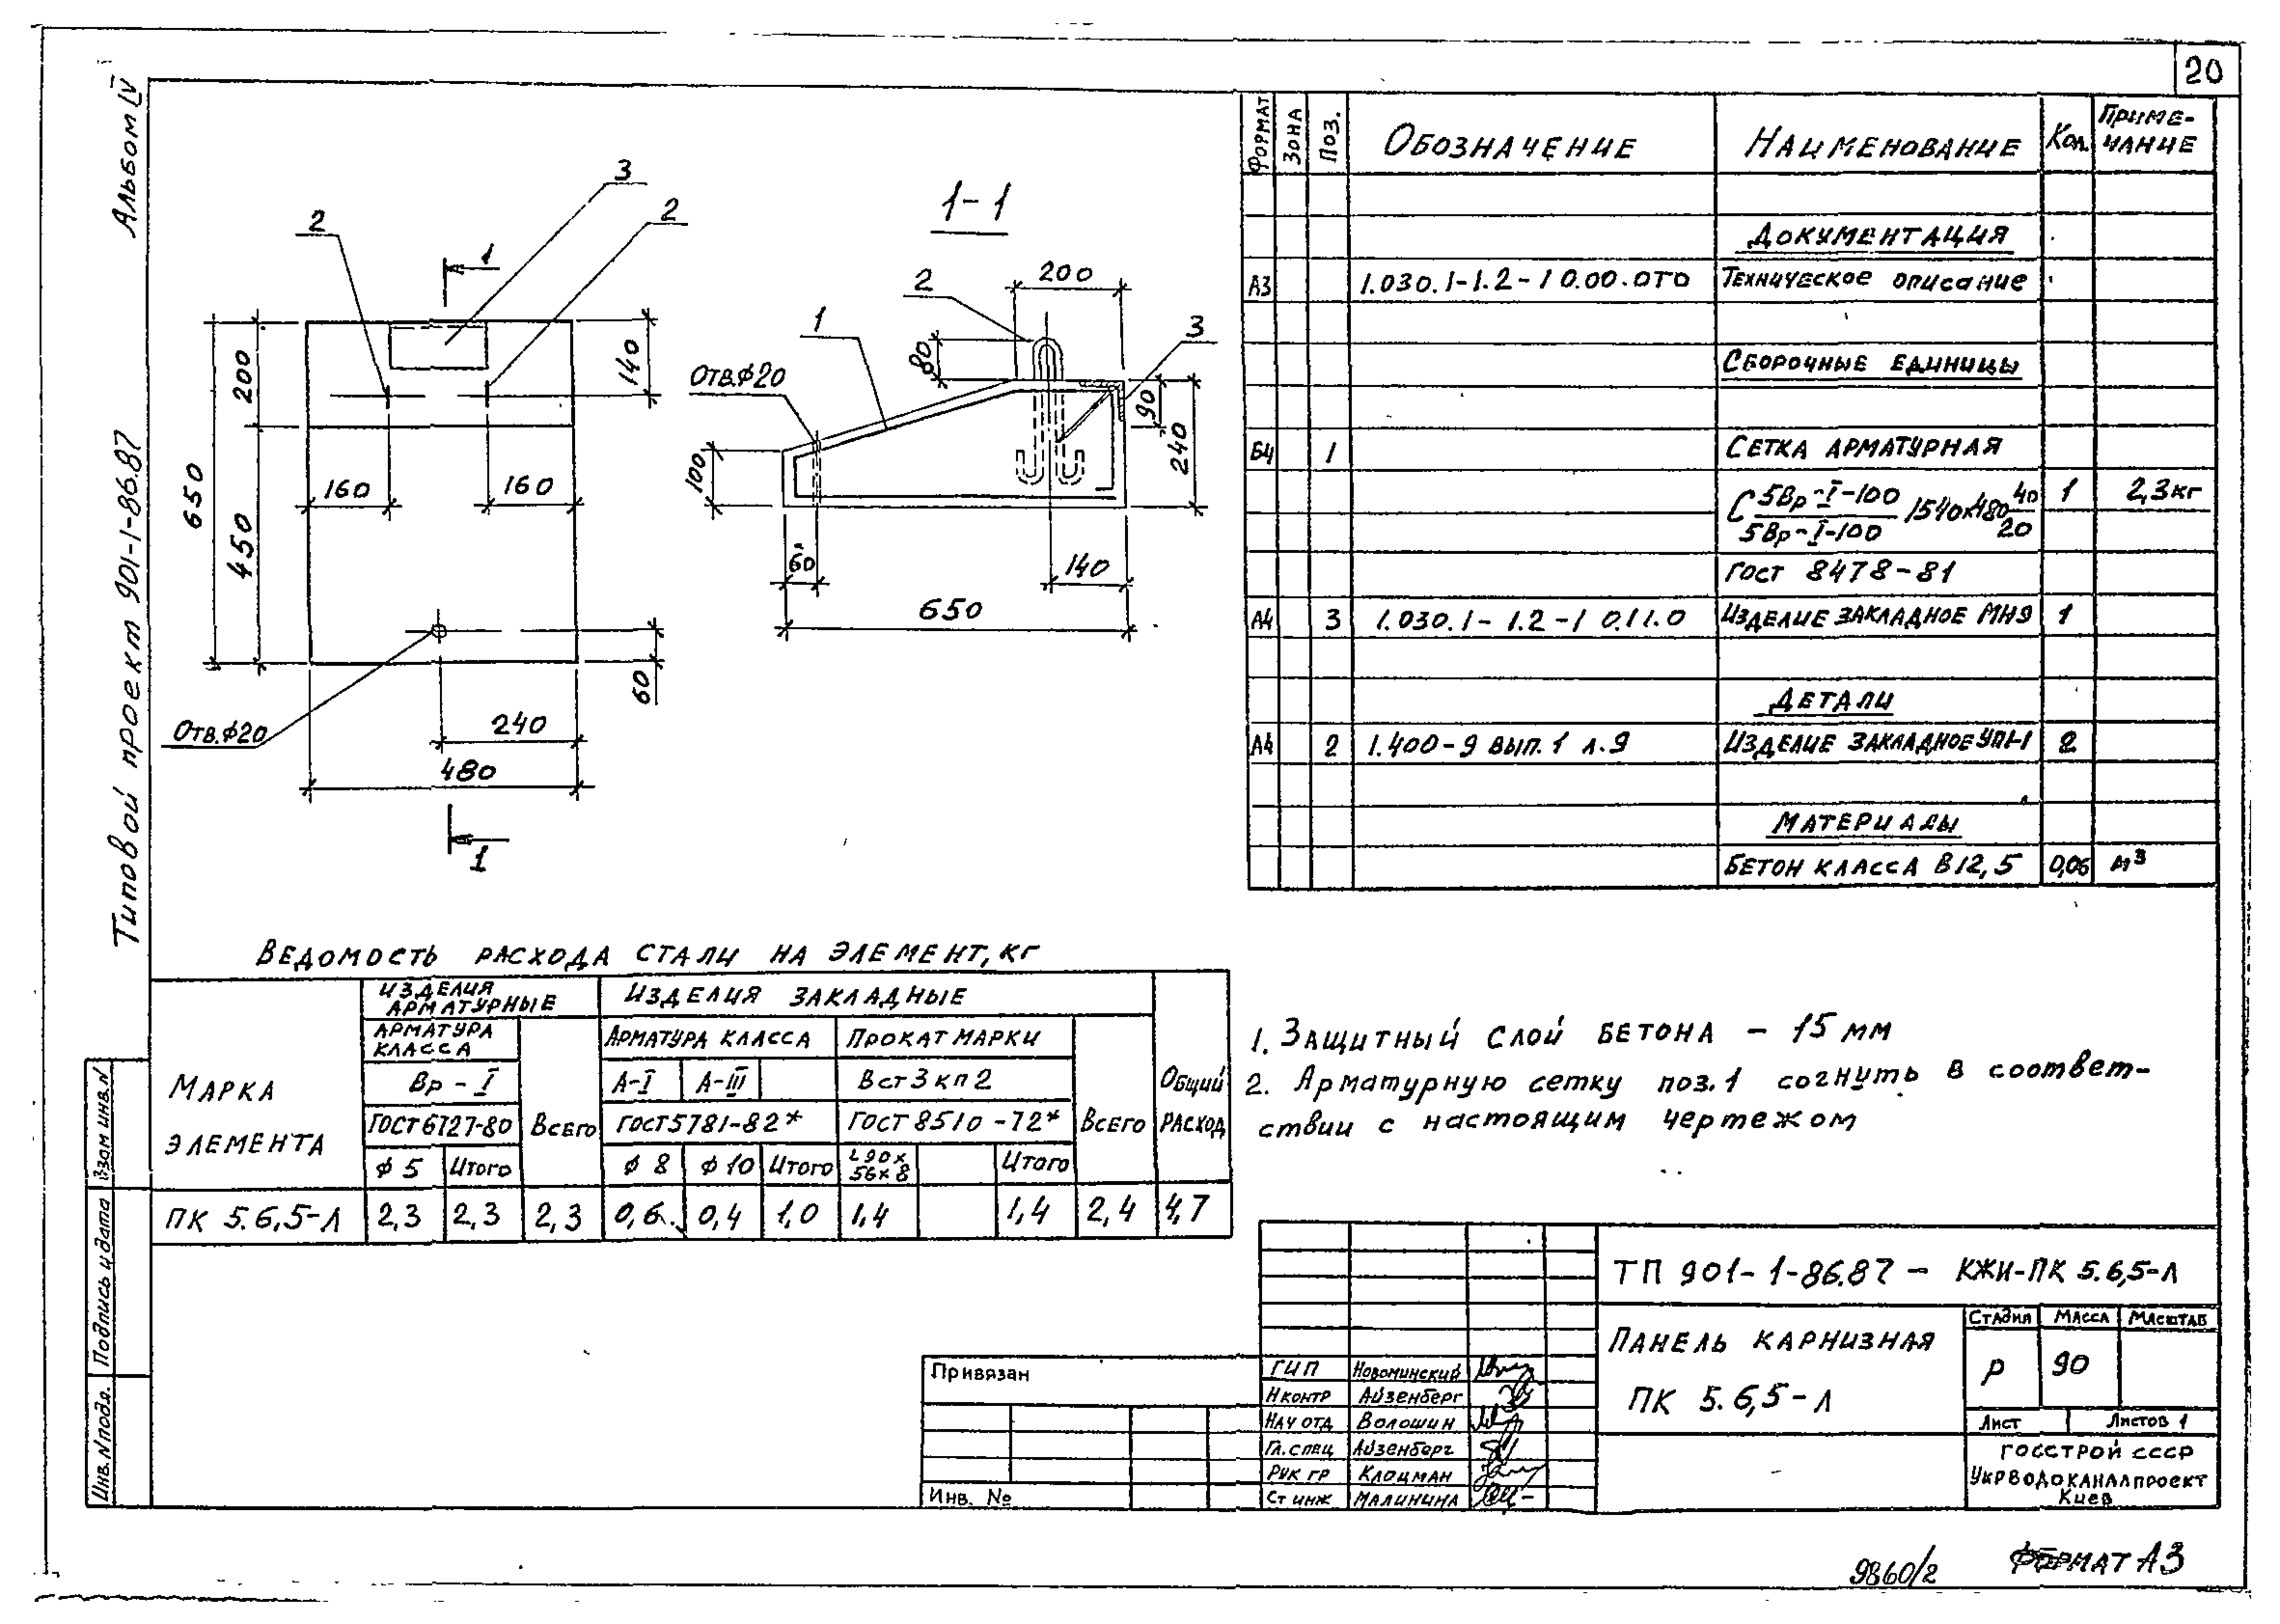 20
Альбом IV
Типовой проект 901-1-86.87
3
2
2
1
650
200
450
140
160
160
60
Отв.ϕ20
240
480
1
1-1
200
2
1
3
80
Отв.ϕ20
90
240
100
60
140
650
Формат
Зона
Поз.
Обозначение
Наименование
Кол.
Приме-
чание
Документация
А3 1.030.1-1.2-1 0.00.0ТО Техническое описание
Сборочные единицы
Б4 1 Сетка арматурная
С 5Вр-I-100 / 5Вр-I-100 1540х480 40/20 1 2,3кг
ГОСТ 8478-81
А4 3 1.030.1-1.2-1 0.11.0 Изделие закладное МН9 1
Детали
А4 2 1.400-9 вып.1 л.9 Изделие закладное УП1-1 2
Материалы
Бетон класса В12,5 0,06 м³
Ведомость расхода стали на элемент, кг
Марка
элемента
Изделия
арматурные
Изделия закладные
Общий
расход
Арматура
класса
Всего
Арматура класса
Прокат марки
Всего
Вр-I
А-I
А-III
Вст3кп2
ГОСТ 6727-80
ГОСТ 5781-82*
ГОСТ 8510-72*
ϕ5 Итого ϕ8 ϕ10 Итого L90х
56х8 Итого
ПК 5.6,5-Л 2,3 2,3 2,3 0,6 0,4 1,0 1,4 1,4 2,4 4,7
1. Защитный слой бетона - 15 мм
2. Арматурную сетку поз.1 согнуть в соответ-
ствии с настоящим чертежом
Взам инв.N
Подпись и дата
Инв.N подл.
Привязан
Инв. №
ТП 901-1-86.87 - КЖИ-ПК 5.6,5-Л
Панель карнизная
ПК 5.6,5-Л
Стадия Масса Масштаб
Р 90
Лист Листов 1
Госстрой СССР
Укрводоканалпроект
Киев
ГИП Новоминский
Н контр Айзенберг
Нач отд Волошин
Гл.спец Айзенберг
Рук гр Клоцман
Ст инж Малинина
9860/2
Формат А3